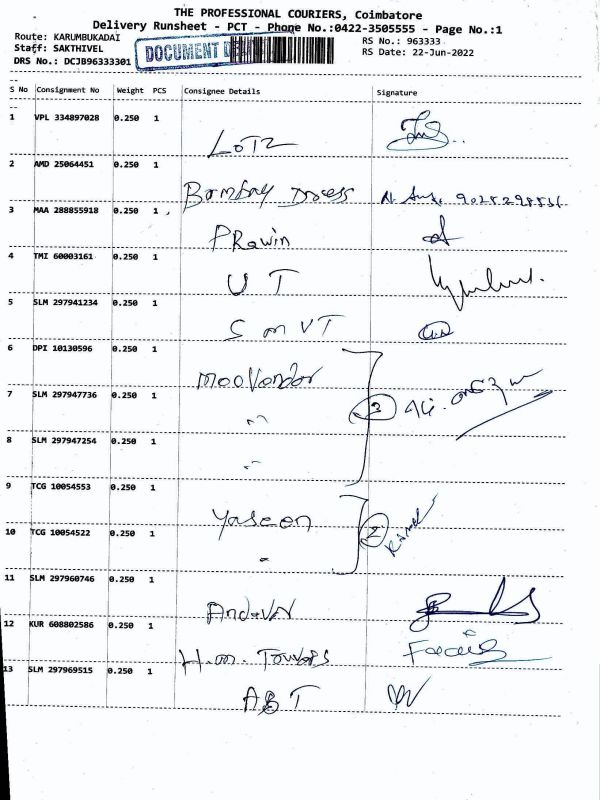 THE PROFESSIONAL COURIERS, Coimbatore
Delivery Runsheet - PCT - Phone No.:0422-3505555 - Page No.:1
Route: KARUMBUKADAI RS No.: 963333
Staff: SAKTHIVEL RS Date: 22-Jun-2022
DOCUMENT
DRS No.: DCJB96333301
S No Consignment No Weight PCS Consignee Details Signature
1 VPL 334897028 0.250 1
LOTZ
2 AMD 25064451 0.250 1
Bombay Dress
3 MAA 288855918 0.250 1
PRawin
4 TMI 60003161 0.250 1
U T
5 SLM 297941234 0.250 1
S m V T
6 DPI 10130596 0.250 1
MooVendar
7 SLM 297947736 0.250 1
" 3
8 SLM 297947254 0.250 1
"
9 TCG 10054553 0.250 1
Yaseen
10 TCG 10054522 0.250 1
" 2
11 SLM 297960746 0.250 1
12 KUR 608802586 0.250 1
H.m. Towers
13 SLM 297969515 0.250 1
A B T